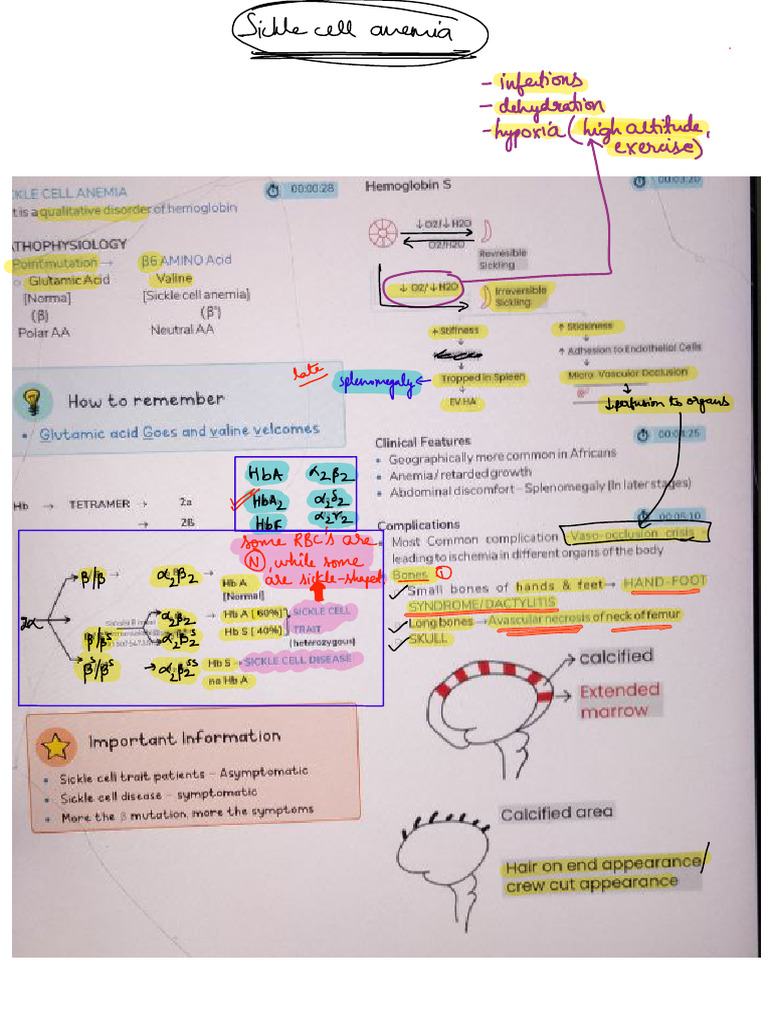 Sickle cell anemia
- infections
- dehydration
- hypoxia (high altitude,
exercise)
KLE CELL ANEMIA
00:00:28
t is a qualitative disorder of hemoglobin
ATHOPHYSIOLOGY
Point mutation → β6 AMINO Acid
Glutamic Acid Valine
[Norma] [Sickle cell anemia]
(β) (βˢ)
Polar AA Neutral AA
How to remember
• Glutamic acid Goes and valine velcomes
Hb → TETRAMER → 2a
→ 2B
HbA α₂β₂
HbA₂ α₂δ₂
HbF α₂γ₂
some RBC's are
(N), while some
are sickle-shaped
2α
β/β → α₂β₂ Hb A
[Normal]
α₂β₂ Hb A [60%] SICKLE CELL
β/βˢ α₂β₂ˢ Hb S [40%] TRAIT
(heterozygous)
βˢ/βˢ → α₂β₂ˢˢ Hb S → SICKLE CELL DISEASE
no Hb A
Important Information
• Sickle cell trait patients - Asymptomatic
• Sickle cell disease - symptomatic
• More the β mutation, more the symptoms
Hemoglobin S
00:03:20
↓O2/↓H2O
O2/H2O
Revresible
Sickling
↓O2/↓H2O
Irreversible
Sickling
↑ Stiffness ↑ Stickiness
↑ Adhesion to Endothelial Cells
late
splenomegaly ← Tropped in Spleen Micro Vascular Occlusion
EV HA ↓perfusion to organs
Clinical Features
• Geographically more common in Africans
• Anemia/ retarded growth
• Abdominal discomfort - Splenomegaly (In later stages)
00:05:10
Complications
• Most Common complication - Vaso-occlusion crisis -
leading to ischemia in different organs of the body
Bones ①
Small bones of hands & feet → HAND-FOOT
SYNDROME/DACTYLITIS
Long bones → Avascular necrosis of neck of femur
SKULL
→ calcified
→ Extended
marrow
Calcified area
Hair on end appearance/
crew cut appearance